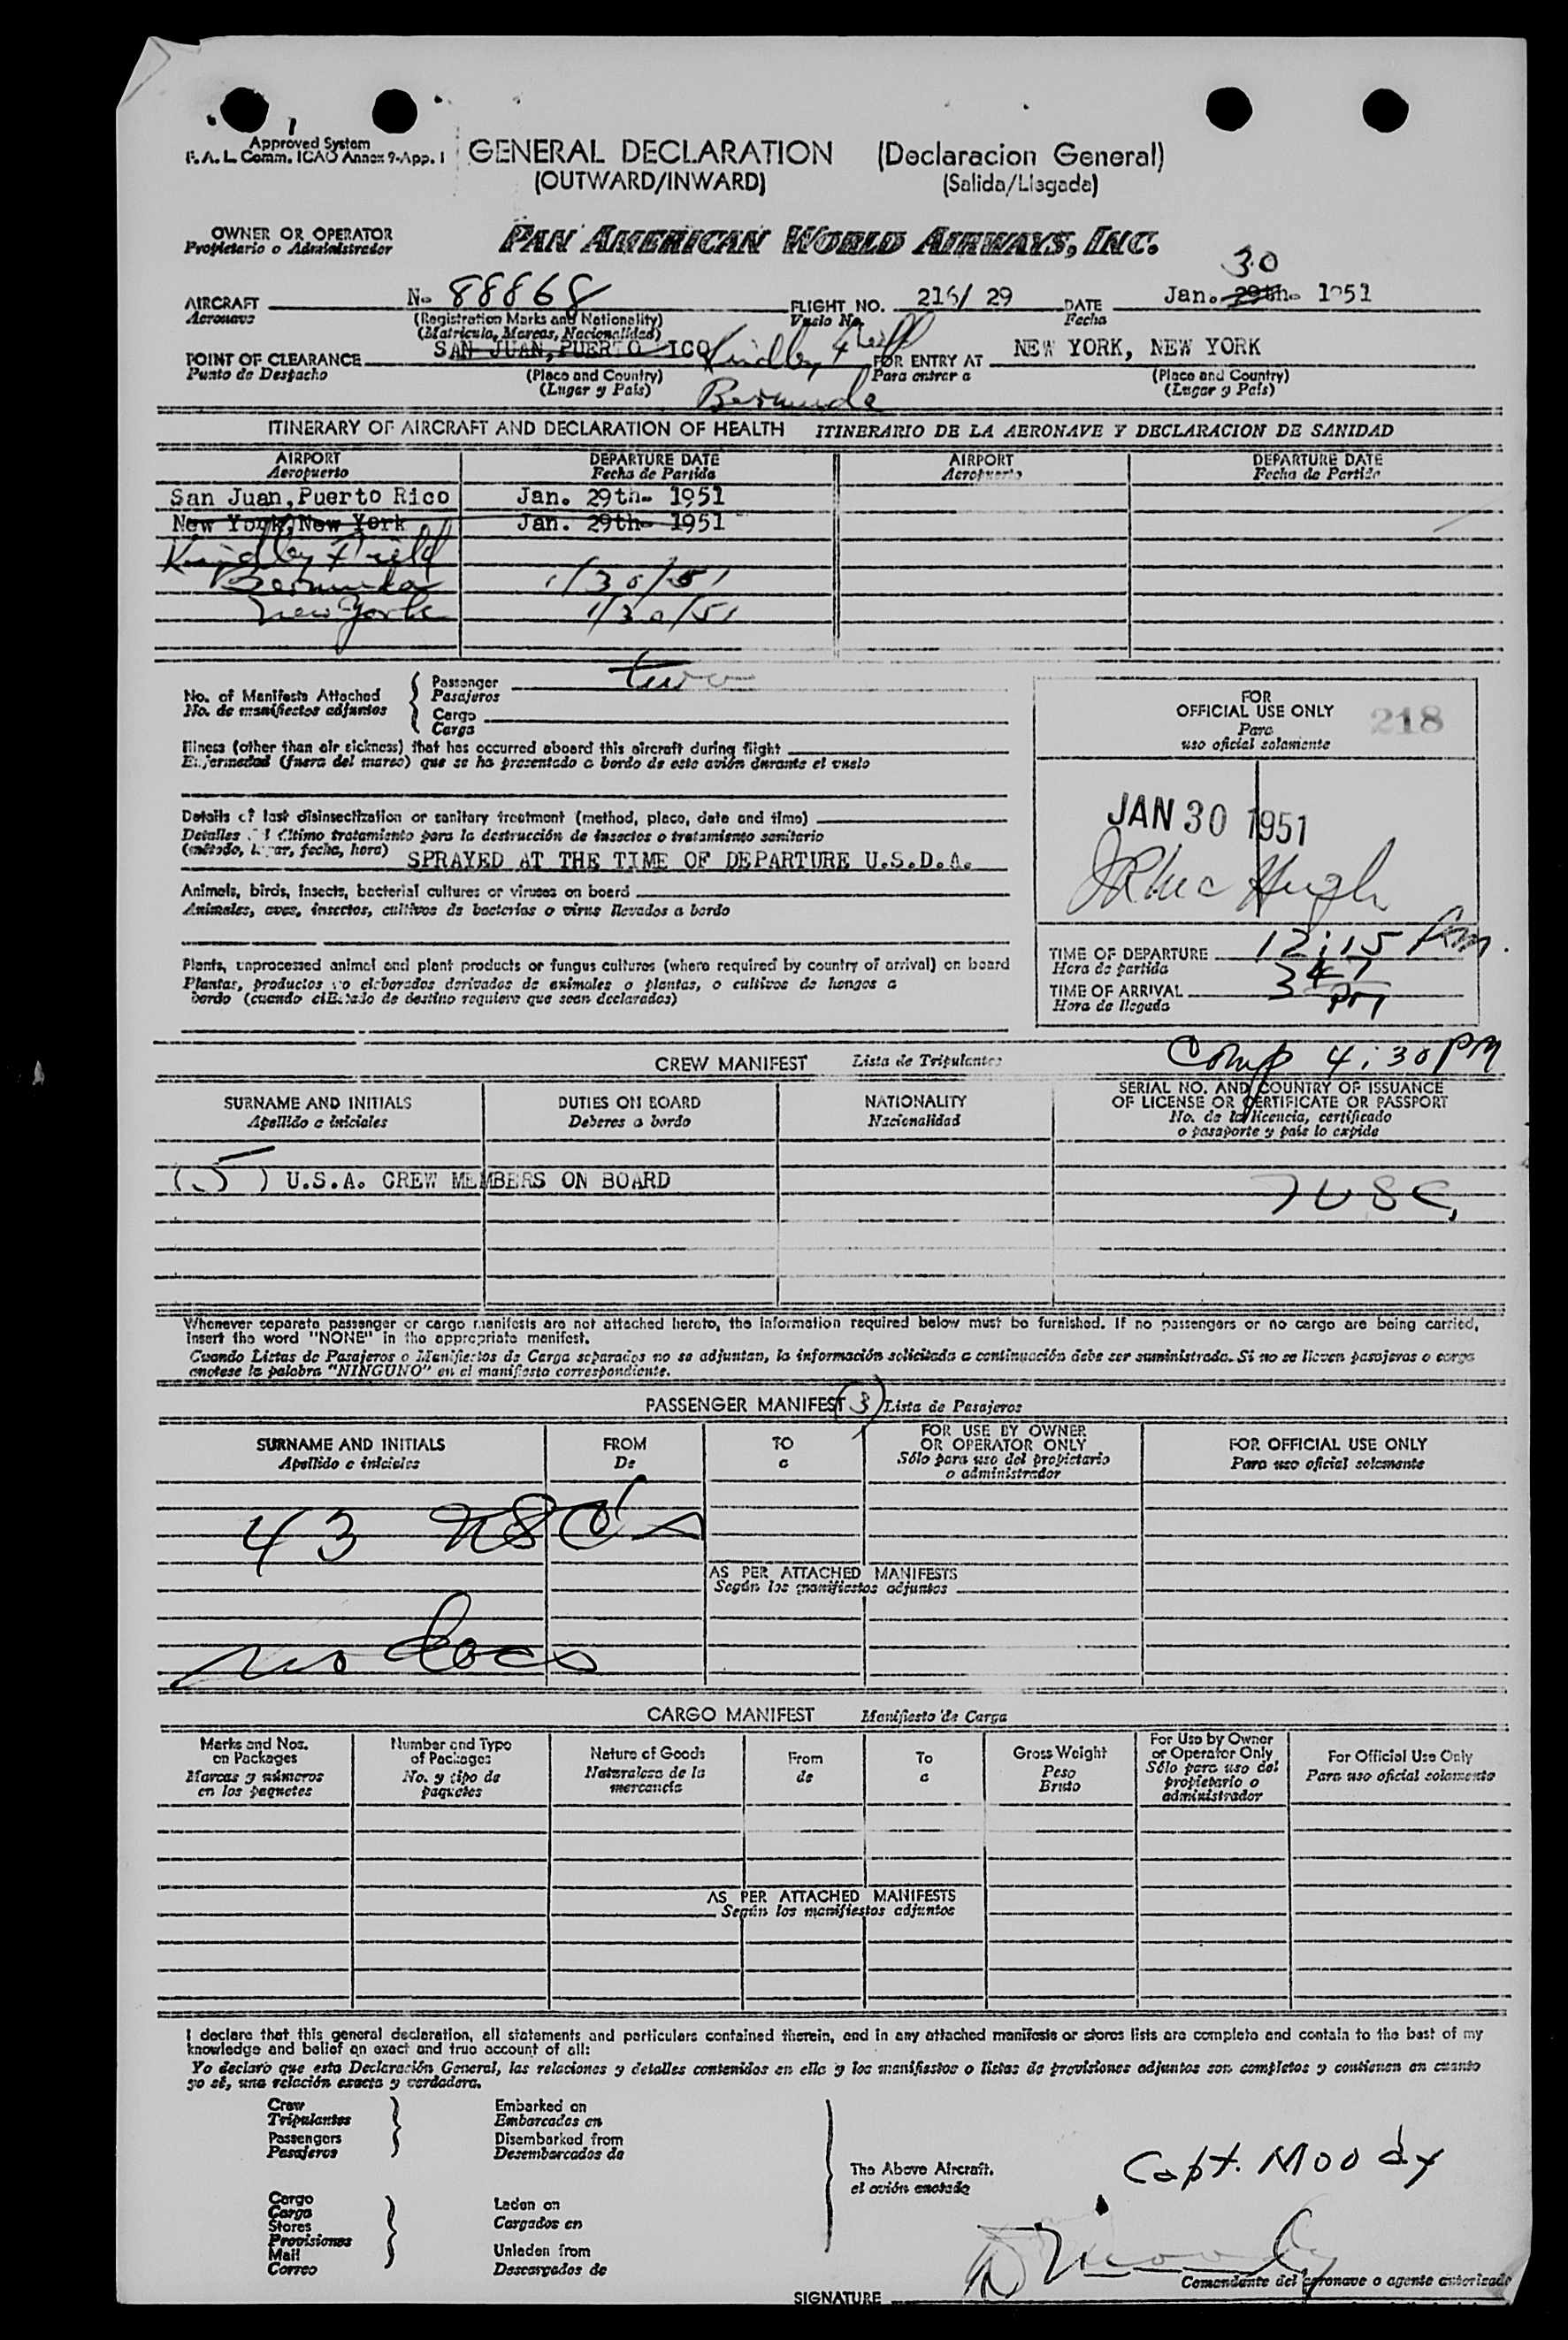 Approved System
F. A. L. Comm. ICAO Annex 9-App. 1
GENERAL DECLARATION (Declaracion General)
(OUTWARD/INWARD) (Salida/Llegada)
OWNER OR OPERATOR
Propietario o Administrador
PAN AMERICAN WORLD AIRWAYS, INC.
30
AIRCRAFT N- 88868 FLIGHT NO. 216/ 29 DATE Jan. 29th- 1951
Aeronave (Registration Marks and Nationality) Vuelo No. Fecha
(Matricula, Marcas, Nacionalidad)
POINT OF CLEARANCE SAN JUAN, PUERTO RICO Kindley Field FOR ENTRY AT NEW YORK, NEW YORK
Punto de Despacho (Place and Country) Para entrar a (Place and Country)
(Lugar y País) Bermuda (Lugar y País)
ITINERARY OF AIRCRAFT AND DECLARATION OF HEALTH ITINERARIO DE LA AERONAVE Y DECLARACION DE SANIDAD
AIRPORT DEPARTURE DATE AIRPORT DEPARTURE DATE
Aeropuerto Fecha de Partida Aeropuerto Fecha de Partida
San Juan, Puerto Rico Jan. 29th- 1951
New York, New York Jan. 29th- 1951
Kindley Field
Bermuda 1/30/51
New York 1/30/51
No. of Manifests Attached
No. de manifiestos adjuntos
Passenger two
Pasajeros
Cargo
Carga
FOR
OFFICIAL USE ONLY 218
Para
uso oficial solamente
Illness (other than air sickness) that has occurred aboard this aircraft during flight
Enfermedad (fuera del mareo) que se ha presentado a bordo de este avión durante el vuelo
Details of last disinsectization or sanitary treatment (method, place, date and time)
Detalles del último tratamiento para la destrucción de insectos o tratamiento sanitario
(método, lugar, fecha, hora) SPRAYED AT THE TIME OF DEPARTURE U.S.D.A.
JAN 30 1951
Animals, birds, insects, bacterial cultures or viruses on board
Animales, aves, insectos, cultivos de bacterias o virus llevados a bordo
Plants, unprocessed animal and plant products or fungus cultures (where required by country of arrival) on board
Plantas, productos no elaborados derivados de animales o plantas, o cultivos de hongos a
bordo (cuando el Estado de destino requiere que sean declarados)
TIME OF DEPARTURE 12:15 Pm.
Hora de partida
TIME OF ARRIVAL 347 pm
Hora de llegada
Comp 4:30 PM
CREW MANIFEST Lista de Tripulantes
SURNAME AND INITIALS DUTIES ON BOARD NATIONALITY SERIAL NO. AND COUNTRY OF ISSUANCE
OF LICENSE OR CERTIFICATE OR PASSPORT
Apellido e iniciales Deberes a bordo Nacionalidad No. de la licencia, certificado
o pasaporte y país lo expide
(5) U.S.A. CREW MEMBERS ON BOARD
7 USC,
Whenever separate passenger or cargo manifests are not attached hereto, the information required below must be furnished. If no passengers or no cargo are being carried,
insert the word "NONE" in the appropriate manifest.
Cuando Listas de Pasajeros o Manifiestos de Carga separados no se adjuntan, la información solicitada a continuación debe ser suministrada. Si no se lleven pasajeros o carga
anotese la palabra "NINGUNO" en el manifiesto correspondiente.
PASSENGER MANIFEST (3) Lista de Pasajeros
SURNAME AND INITIALS FROM TO FOR USE BY OWNER
OR OPERATOR ONLY FOR OFFICIAL USE ONLY
Apellido e iniciales De a Sólo para uso del propietario
o administrador Para uso oficial solamente
43 USC's
AS PER ATTACHED MANIFESTS
Según los manifiestos adjuntos
no docs
CARGO MANIFEST Manifiesto de Carga
Marks and Nos.
on Packages
Marcas y números
en los paquetes
Number and Type
of Packages
No. y tipo de
paquetes
Nature of Goods
Naturaleza de la
mercancía
From
de
To
a
Gross Weight
Peso
Bruto
For Use by Owner
or Operator Only
Sólo para uso del
propietario o
administrador
For Official Use Only
Para uso oficial solamente
AS PER ATTACHED MANIFESTS
Según los manifiestos adjuntos
I declare that this general declaration, all statements and particulars contained therein, and in any attached manifests or stores lists are complete and contain to the best of my
knowledge and belief an exact and true account of all:
Yo declaro que esta Declaración General, las relaciones y detalles contenidos en ella y los manifiestos o listas de provisiones adjuntos son completos y contienen en cuanto
yo sé, una relación exacta y verdadera.
Crew
Tripulantes
Passengers
Pasajeros
Embarked on
Embarcados en
Disembarked from
Desembarcados de
The Above Aircraft.
el avión anotado
Capt. Moody
Cargo
Carga
Stores
Provisiones
Mail
Correo
Laden on
Cargados en
Unladen from
Descargados de
D Moody
Comandante del aeronave o agente autorizado
SIGNATURE